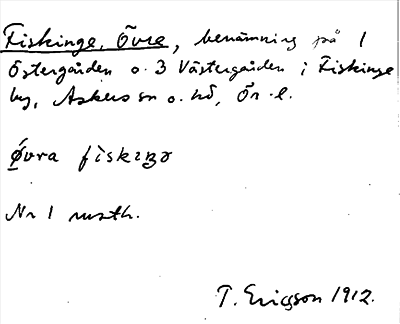 Fiskinge, Övre, benämning på 1
Östergården o. 3 Västergården i Fiskinge
by, Askers sn o. hd, Ör. l.
Ǿvra fìskiŋə
Nr 1 msth.
T. Ericsson 1912.